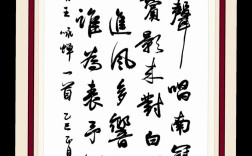 聲唱南冠
鬢影来對白
進風多響
誰為表予
王咏蟬一首乙巳